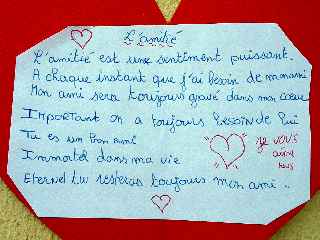 L'amitié
L'amitié est une sentiment puissant.
A chaque instant que j'ai besoin de mon ami
Mon ami sera toujours gravé dans mon coeur
Important on a toujours besoin de lui
Tu es un bon ami
Immortel dans ma vie
Eternel tu resteras toujours mon ami..
Je vous
aime
tous